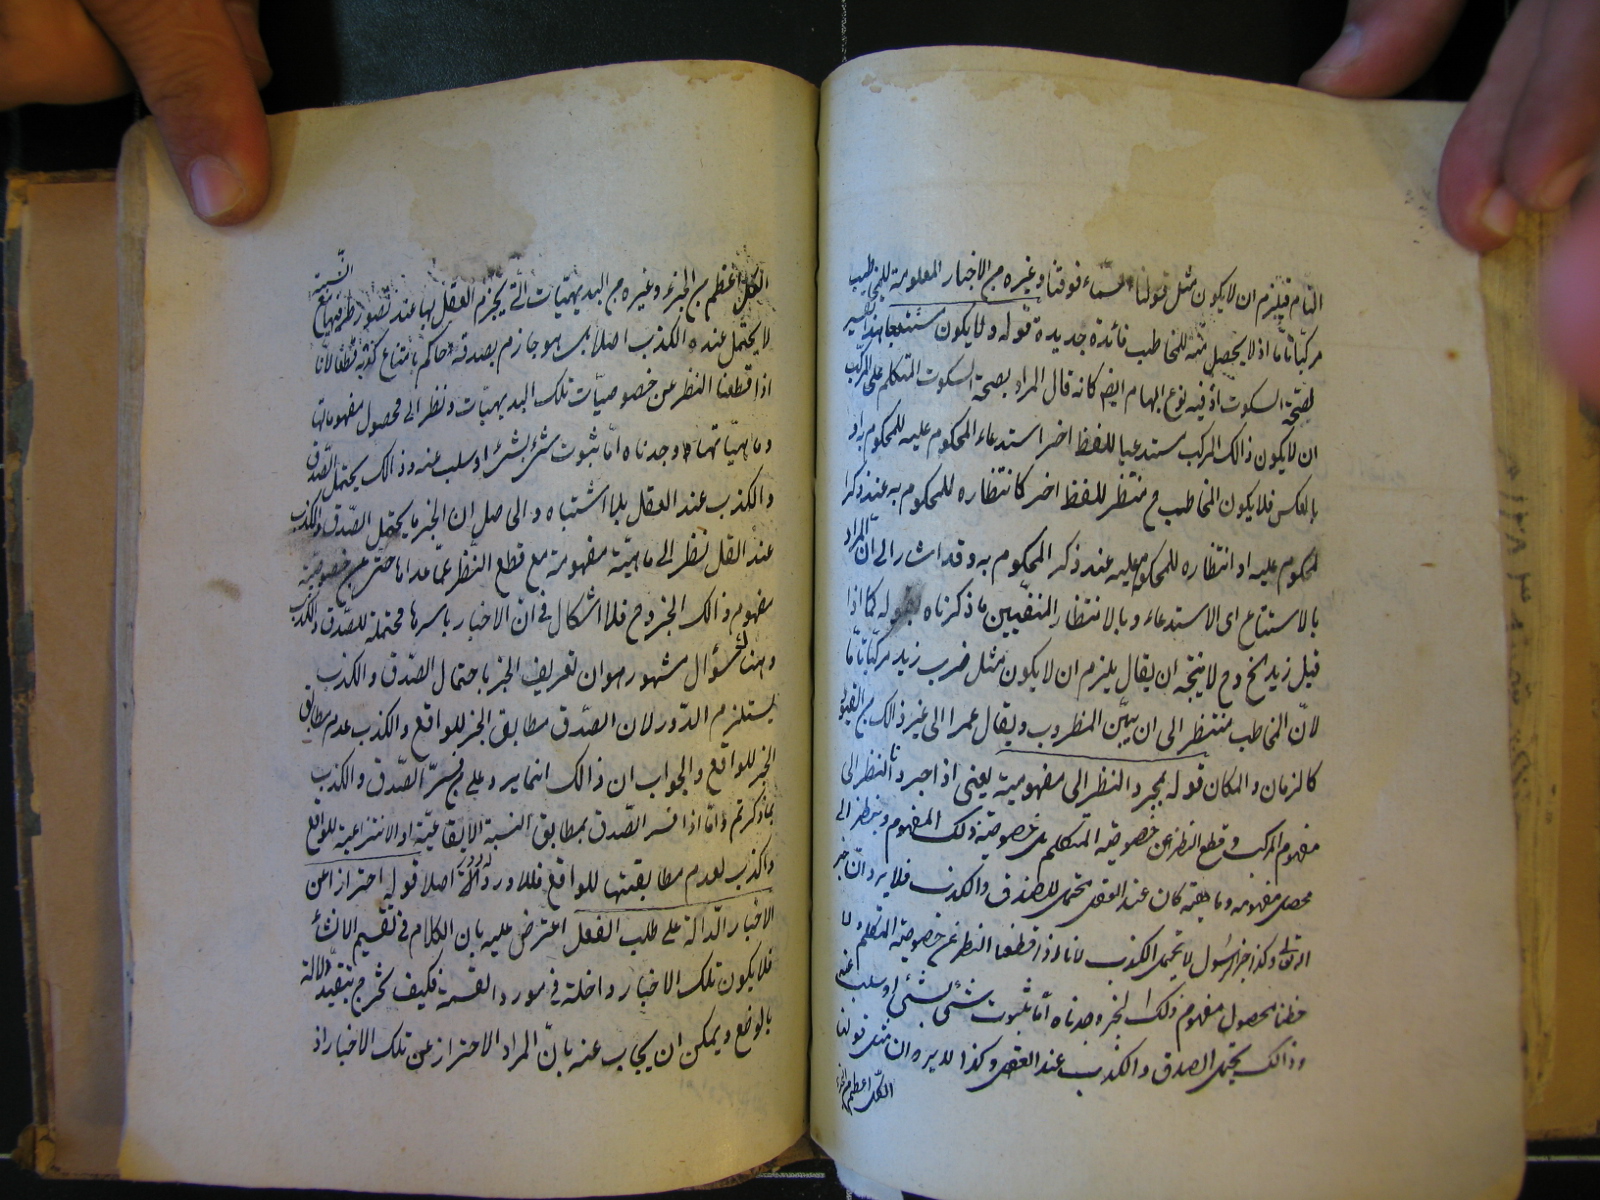 التام فيلزم ان لا يكون مثل قولنا السماء فوقنا وغيره من الاخبار المعلومة للمخاطب
مركبا تاما اذ لا يحصل منه للمخاطب فائدة جديدة قوله ولا يكون مستتبعا هذا تفسير
لصحة السكوت اذ فيه نوع ابهام ايضا كانه قال المراد بصحة السكوت المتكلم على المركب
ان لا يكون ذالك المركب مستدعيا للفظ اخر استدعاء المحكوم عليه للمحكوم به او
بالعكس فلا يكون المخاطب ح منتظر للفظ اخر كانتظاره للمحكوم به عند ذكر
المحكوم عليه او انتظاره للمحكوم عليه عند ذكر المحكوم به وقد اشار الى ان المراد
بالاستتباع اى الاستدعاء وبالانتظار المنفيين ما ذكرناه بقوله كما اذا
قيل زيد الخ وح لا يتجه ان يقال يلزم ان لا يكون مثل ضرب زيد مركبا تاما
لان المخاطب منتظر الى ان يبين المضروب ويقال عمرا الى غير ذالك من القيود
كالزمان والمكان قوله بمجرد النظر الى مفهومية يعنى اذا جرد نا النظر الى
مفهوم المركب وقطع النظر عن خصوصية المتكلم بل خصوصية ذلك المفهوم وينظر الى
محصل مفهومه وماهيته كان عند العقل محتمل للصدق والكذب فلا يرد ان خبر
الله تعالى وكذا خبر الرسول لا يحتمل الكذب لانا اذا قطعنا النظر عن خصوصية المتكلم ولا
حظنا محصول مفهوم ذلك الخبر وجدناه اما ثبوت شئ لشئ او سلب عنه
وذالك يحتمل الصدق والكذب عند العقل وكذا لا يرد ان مثل قولنا
الكل اعظم من الجزء
الكل اعظم من الجزء وغيره من البديهيات التى يجزم العقل بها عند تصور طرفيها مع النسبة
لا يحتمل عنده الكذب اصلا بل هو جازم بصدقه وحاكم بامتناع كذبه قطعا لانا
اذا قطعنا النظر عن خصوصيات تلك البديهيات ونظر الى محصول مفهوماتها
وماهياتها وجدناه اما ثبوت شئ لشئ او سلب عنه وذالك يحتمل الصدق
والكذب عند العقل بلا اشتباه والحاصل ان الخبر ما يحتمل الصدق والكذب
عند العقل نظر الى ماهية مفهومة مع قطع النظر عما عداها حتى عن خصوصية
مفهوم ذالك الخبر وح فلا اشكال فى ان الاخبار باسرها محتملة للصدق والكذب
وهنا سؤال مشهور هو ان تعريف الخبر باحتمال الصدق والكذب
يستلزم الدور لان الصدق مطابق الخبر للواقع والكذب عدم مطابق
الخبر للواقع والجواب ان ذالك انما يرد على من فسر الصدق والكذب
بما ذكرتم واما اذا فسر الصدق بمطابق النسبة الايقاعية او الانتزاعية للواقع
والكذب لعدم مطابقتها للواقع فلا ورود له اصلا قوله احتراز عن
الاخبار الدالة على طلب الفعل اعترض عليه بان الكلام فى تقسيم الانشأ
فلا يكون تلك الاخبار داخلة فى مورد القسمة فكيف تخرج بتقييد الدلالة
بالوضع ويمكن ان يجاب عنه بان المراد الاحتراز عن تلك الاخبار اذ